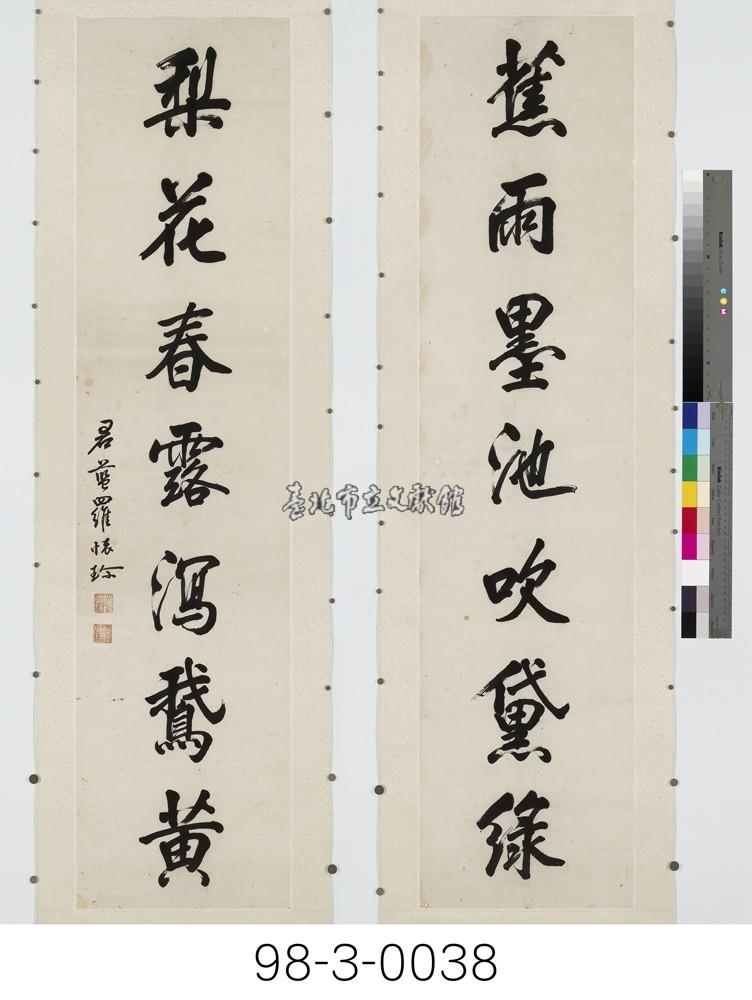 蕉雨墨池吹黛綠
梨花春露瀉鵝黃
君藍羅懷珍
臺北市立文獻館
Kodak Gray Scale
C Y M
Kodak Color Control Patches
98-3-0038